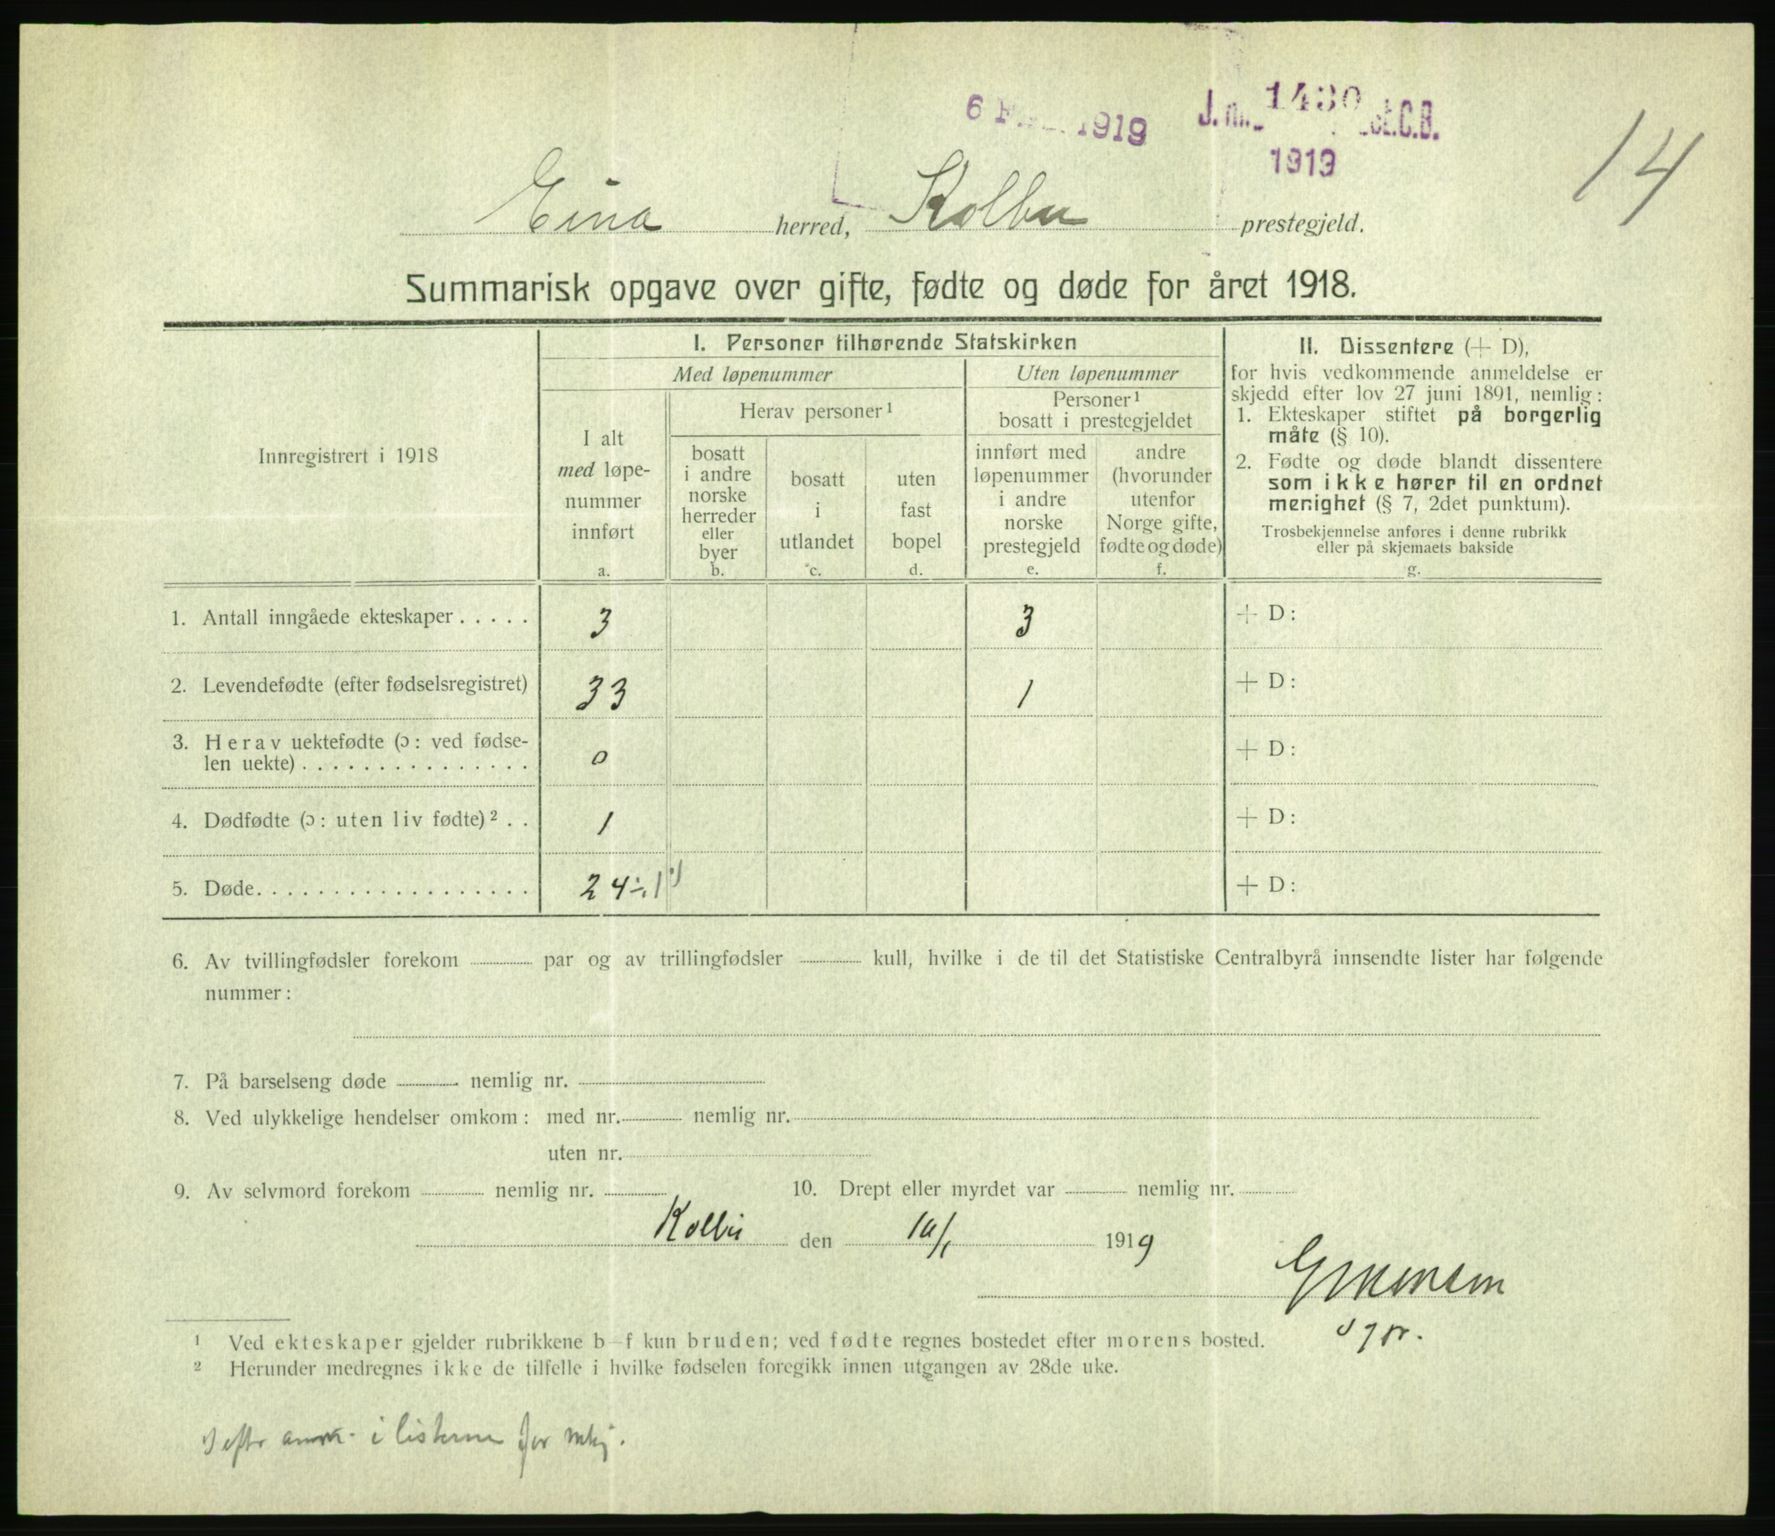 6 1919 J. nr. 1430 St.C.B.
1919
14
Eina herred, Kolbu prestegjeld.
Summarisk opgave over gifte, fødte og døde for året 1918.
Innregistrert i 1918
I. Personer tilhørende Statskirken
Med løpenummer
Uten løpenummer
I alt
med løpe-
nummer
innført
a.
Herav personer¹
bosatt
i andre
norske
herreder
eller
byer
b.
bosatt
i
utlandet
c.
uten
fast
bopel
d.
Personer¹
bosatt i prestegjeldet
innført med
løpenummer
i andre
norske
prestegjeld
e.
andre
(hvorunder
utenfor
Norge gifte,
fødte og døde)
f.
II. Dissentere (+ D),
for hvis vedkommende anmeldelse er
skjedd efter lov 27 juni 1891, nemlig:
1. Ekteskaper stiftet på borgerlig
måte (§ 10).
2. Fødte og døde blandt dissentere
som ikke hører til en ordnet
menighet (§ 7, 2det punktum).
Trosbekjennelse anføres i denne rubrikk
eller på skjemaets bakside
g.
1. Antall inngåede ekteskaper . . . . . 3 3 + D:
2. Levendefødte (efter fødselsregistret) 33 1 + D:
3. Herav uektefødte (ɔ: ved fødse-
len uekte) . . . . . . . . . . . . . . . 0 + D:
4. Dødfødte (ɔ: uten liv fødte)² . . 1 + D:
5. Døde. . . . . . . . . . . . . . . . . . 24÷1¹) + D:
6. Av tvillingfødsler forekom par og av trillingfødsler kull, hvilke i de til det Statistiske Centralbyrå innsendte lister har følgende
nummer:
7. På barselseng døde nemlig nr.
8. Ved ulykkelige hendelser omkom: med nr. nemlig nr.
uten nr.
9. Av selvmord forekom nemlig nr. 10. Drept eller myrdet var nemlig nr.
Kolbu den 1919
¹ Ved ekteskaper gjelder rubrikkene b—f kun bruden; ved fødte regnes bostedet efter morens bosted.
² Herunder medregnes ikke de tilfelle i hvilke fødselen foregikk innen utgangen av 28de uke.
i listerne for